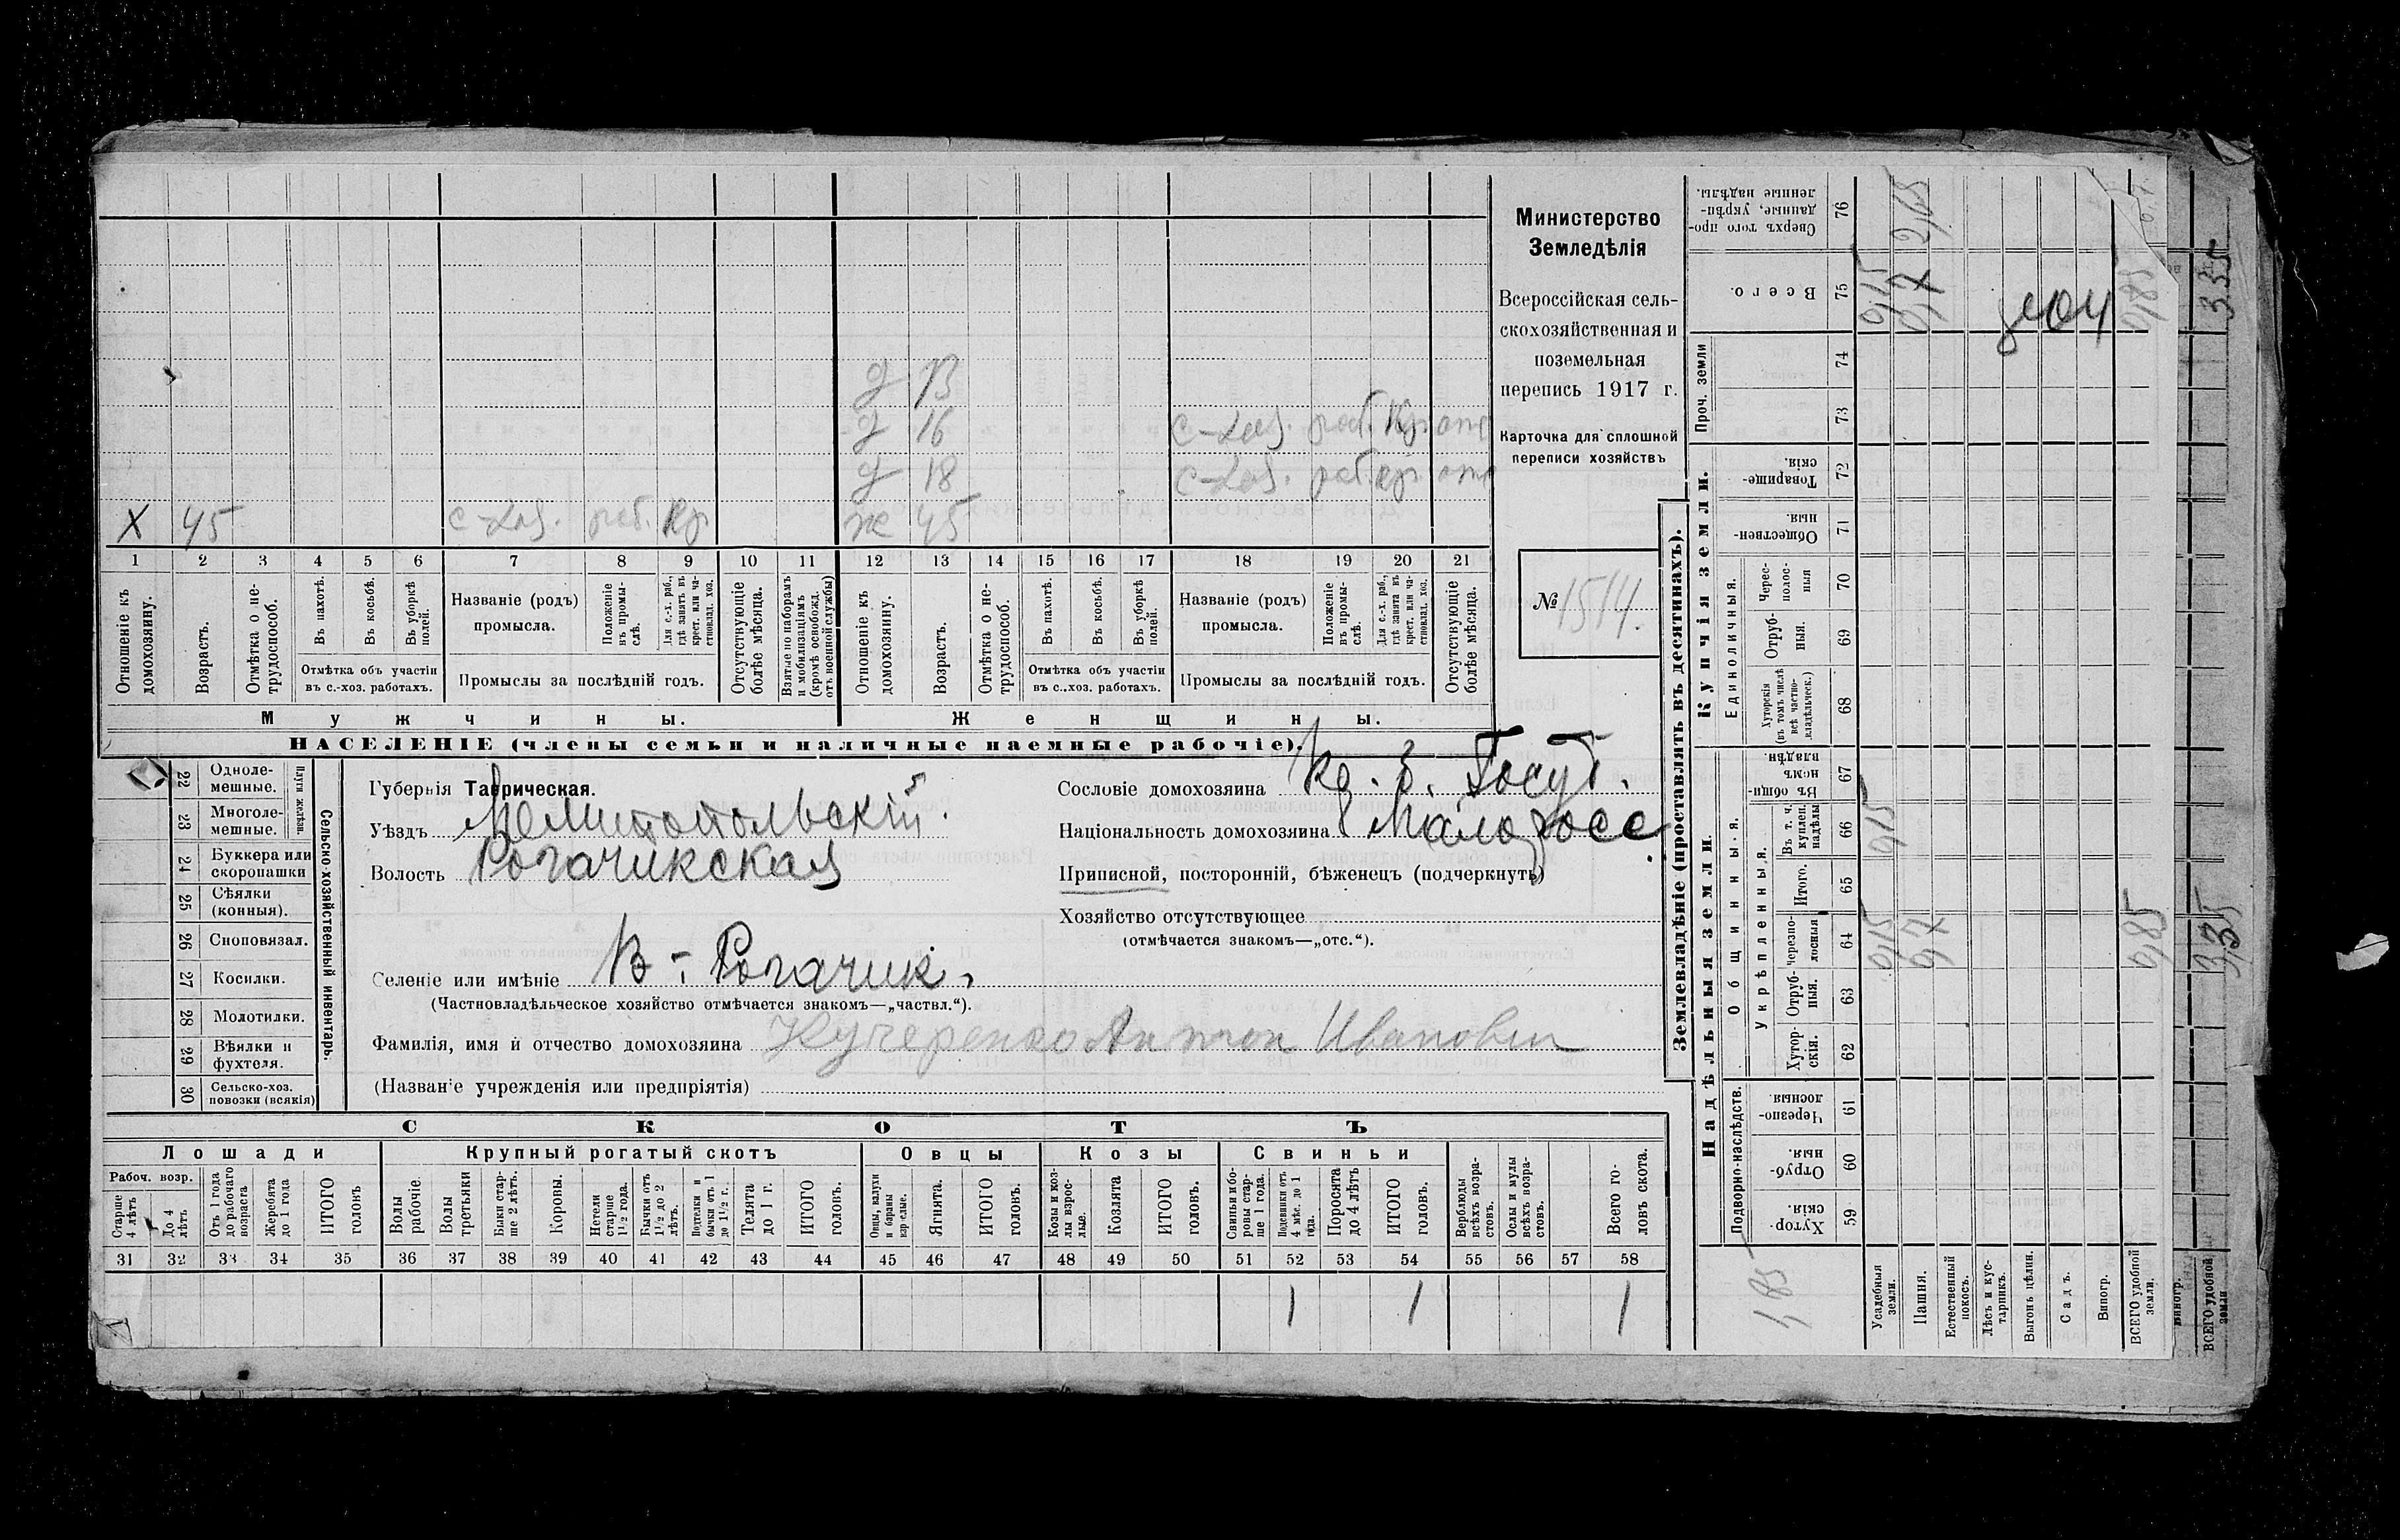 Министерство
Земледѣлія
Всероссійская сель-
скохозяйственная и
поземельная
перепись 1917 г.
Карточка для сплошной
переписи хозяйствъ
№ 1514.
д 13
д 16 с-хоз. раб. Кр. отс
д 18 с-хоз. раб. кр. отс
х 45 с-хоз. раб. кр ж 45
1 2 3 4 5 6 7 8 9 10 11 12 13 14 15 16 17 18 19 20 21
Отношеніе къ домохозяину.
Возрастъ.
Отмѣтка о не-трудоспособ.
Въ пахотѣ.
Въ косьбѣ.
Въ уборкѣ полей.
Отмѣтка объ участіи
въ с.-хоз. работахъ.
Названіе (родъ)
промысла.
Положеніе въ промы-слѣ.
Для с.-х. раб., гдѣ занятъ въ крест. или ча-стновлад. хоз.
Промыслы за послѣдній годъ.
Отсутствующіе болѣе мѣсяца.
Взятые по наборамъ и мобилизаціямъ (кромѣ освобожд. отъ военной службы)
Отношеніе къ домохозяину.
Возрастъ.
Отмѣтка о не-трудоспособ.
Въ пахотѣ.
Въ косьбѣ.
Въ уборкѣ полей.
Отмѣтка объ участіи
въ с..хоз. работахъ.
Названіе (родъ)
промысла.
Положеніе въ промы-слѣ.
Для с.-х. раб., гдѣ занята въ крест. или ча-стновлад. хоз.
Промыслы за послѣдній годъ.
Отсутствующіе болѣе мѣсяца.
Мужчины. Женщины.
НАСЕЛЕНІЕ (члены семьи и наличные наемные рабочіе).
Сельско-хозяйственный инвентарь.
Плуги желѣзн.
22 Одноле-мешные.
23 Многоле-мешные.
24 Буккера или скоропашки
25 Сѣялки (конныя).
26 Сноповязал.
27 Косилки.
28 Молотилки.
29 Вѣялки и фухтеля.
30 Сельско-хоз. повозки (всякія)
Губернія Таврическая.
Уѣздъ Мелитопольскій.
Волость Рогачикская
Селеніе или имѣніе В-Рогачик.
(Частновладѣльческое хозяйство отмѣчается знакомъ—„частвл.“).
Фамилія, имя и отчество домохозяина Кучеренко Антон Иванович
(Названіе учрежденія или предпріятія)
Сословіе домохозяина Кр. б. Госуд.
Національность домохозяина Малоросс
Приписной, посторонній, бѣженецъ (подчеркнуть)
Хозяйство отсутствующее
(отмѣчается знакомъ—„отс.“).
СКОТЪ
Лошади Крупный рогатый скотъ Овцы Козы Свиньи
Рабоч. возр.
Старше 4 лѣтъ
До 4 лѣтъ
Отъ 1 года до рабочаго возраста
Жеребята до 1 года
ИТОГО головъ
Волы рабочіе.
Волы третьяки
Быки стар-ше 2 лѣтъ.
Коровы.
Нетели старше 1½ года.
Бычки отъ 1½ до 2 лѣтъ.
Подтелки и бычки отъ 1 до 1½ г.
Телята до 1 г.
ИТОГО головъ.
Овцы, валухи и бараны взрослые.
Ягнята.
ИТОГО головъ.
Козы и коз-лы взрос-лые.
Козлята
ИТОГО головъ.
Свиньи и бо-ровы стар-ше 1 года.
Подсвинки отъ 4 мѣс. до 1 года.
Поросята до 4 лѣтъ
ИТОГО головъ.
Верблюды всѣхъ возра-стовъ.
Ослы и мулы всѣхъ возра-стовъ.
Всего го-ловъ скота.
31 32 33 34 35 36 37 38 39 40 41 42 43 44 45 46 47 48 49 50 51 52 53 54 55 56 57 58
1 1 1
Землевладѣніе (проставлять въ десятинахъ).
Купчія земли.
Надѣльныя земли.
Сверхъ того про-данные, укрѣп-ленные надѣлы. 76 2,65
Всего. 75 0,15 0,7 0,85 3.35
Проч. земли 74 73
Товарище-скія. 72
Обществен-ныя. 71
Единоличныя.
Черес-полос-ныя 70
Отруб-ныя. 69
Хуторскія (въ томъ числѣ всѣ частно-владѣльческ.) 68
Общинныя.
Въ общи-номъ владѣн. 67
Укрѣпленныя.
Въ т. ч. куплен. надѣлы 66 0,15
Итого. 65
Черезпо-лосныя 64 0,15 0,7 0,85 3,35
Отруб-ныя. 63
Хутор-скія. 62
Подворно-наслѣдств.
Черезпо-лосныя. 61
Отруб-ныя 60
Хутор-скія. 59
Усадебныя земли.
Пашня.
Естественный покосъ.
Лѣсъ и кус-тарникъ.
Выгонъ цѣлин.
Садъ.
Виногр.
ВСЕГО удобной земли.
Виногр.
ВСЕГО удобной земли